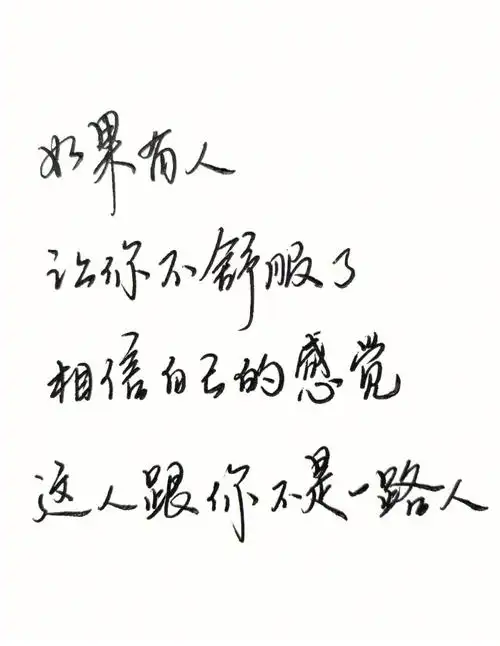 如果有人
让你不舒服了
相信自己的感觉
这人跟你不是一路人